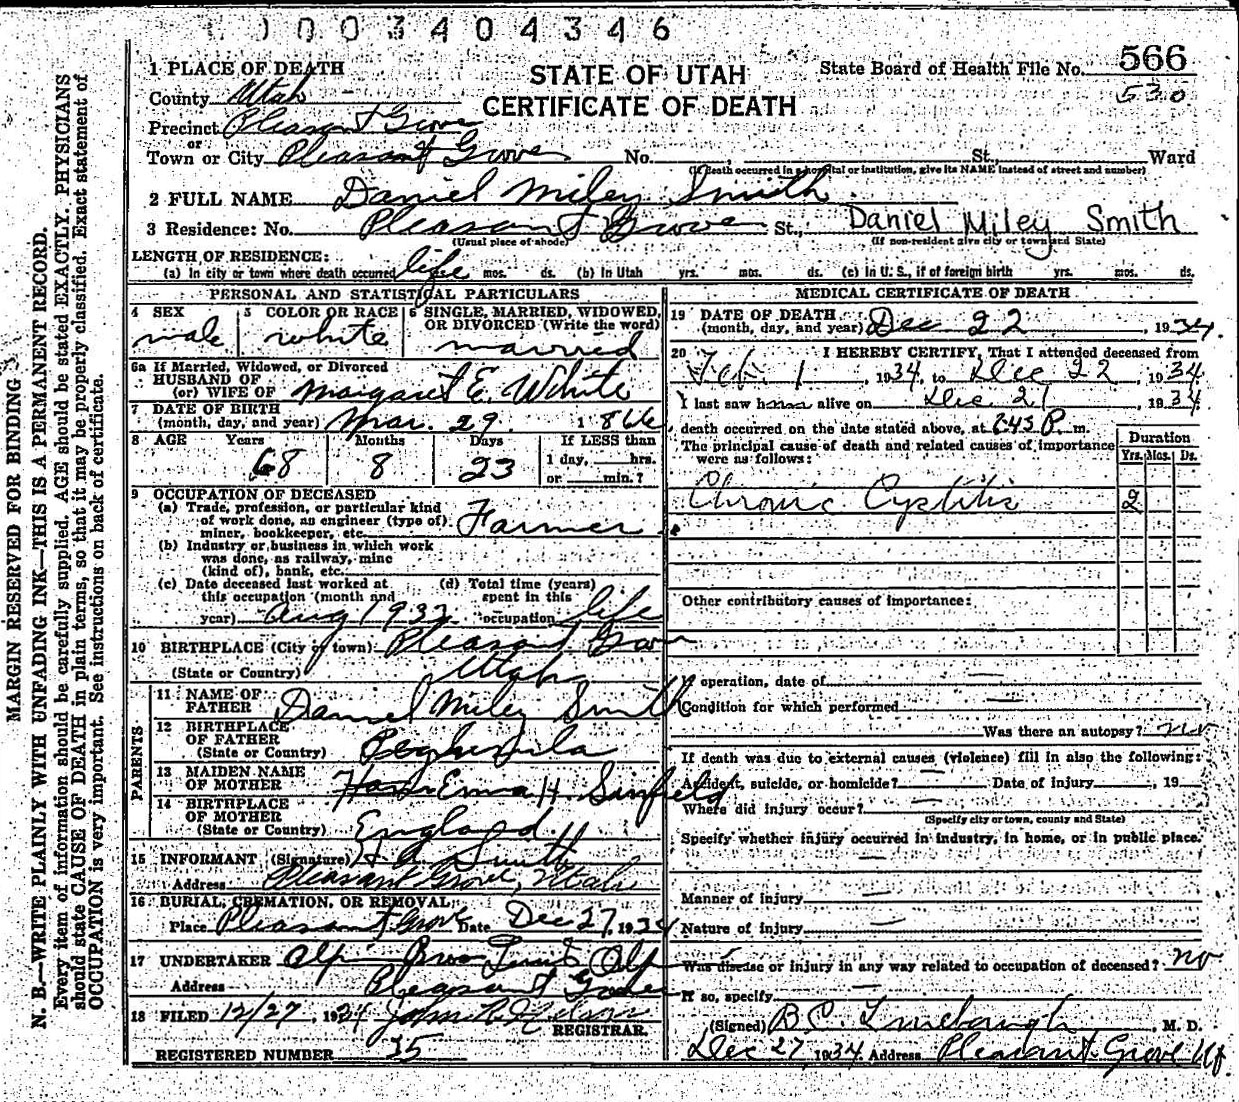 1003404346
1 PLACE OF DEATH
STATE OF UTAH
CERTIFICATE OF DEATH
State Board of Health File No. 566
530
County Utah
Precinct Pleasant Grove
or
Town or City Pleasant Grove No. , St., Ward
(If death occurred in a hospital or institution, give its NAME instead of street and number)
2 FULL NAME Daniel Miley Smith
3 Residence: No. Pleasant Grove St., Daniel Miley Smith
(Usual place of abode) (If non-resident give city or town and State)
LENGTH OF RESIDENCE:
(a) In city or town where death occurred life mos. ds. (b) In Utah yrs. mos. ds. (c) In U. S., if of foreign birth yrs. mos. ds.
PERSONAL AND STATISTICAL PARTICULARS
4 SEX male
5 COLOR OR RACE white
6 SINGLE, MARRIED, WIDOWED, OR DIVORCED (Write the word) married
6a If Married, Widowed, or Divorced
HUSBAND OF
(or) WIFE OF Margaret E. White
7 DATE OF BIRTH
(month, day, and year) Mar. 29 1866
8 AGE Years Months Days If LESS than
68 8 23 1 day, hrs.
or min.?
9 OCCUPATION OF DECEASED
(a) Trade, profession, or particular kind
of work done, as engineer (type of)
miner, bookkeeper, etc. Farmer
(b) Industry or business in which work
was done, as railway, mine
(kind of), bank, etc.
(c) Date deceased last worked at
this occupation (month and
year) Aug 1932
(d) Total time (years)
spent in this
occupation life
10 BIRTHPLACE (City or town) Pleasant Grove
(State or Country) Utah
PARENTS
11 NAME OF
FATHER Daniel Miley Smith
12 BIRTHPLACE
OF FATHER
(State or Country)
13 MAIDEN NAME
OF MOTHER Emma H Sinfield
14 BIRTHPLACE
OF MOTHER
(State or Country) England
15 INFORMANT (Signature) H A Smith
Address Pleasant Grove, Utah
16 BURIAL, CREMATION, OR REMOVAL
Place Pleasant Grove Date Dec 27, 1934
17 UNDERTAKER
Address Pleasant Grove
18 FILED 12/27, 1934
REGISTRAR.
REGISTERED NUMBER 35
MEDICAL CERTIFICATE OF DEATH
19 DATE OF DEATH
(month, day, and year) Dec 22, 1934.
20 I HEREBY CERTIFY, That I attended deceased from
Feb. 1, 1934, to Dec 22, 1934
I last saw him alive on Dec 21, 1934
death occurred on the date stated above, at 6:45 P m.
The principal cause of death and related causes of importance
were as follows:
Duration
Yrs. Mos. Ds.
Chronic Cystitis 2
Other contributory causes of importance:
If operation, date of
Condition for which performed
Was there an autopsy? no
If death was due to external causes (violence) fill in also the following:
Accident, suicide, or homicide? Date of injury , 19
Where did injury occur?
(Specify city or town, county and State)
Specify whether injury occurred in industry, in home, or in public place.
Manner of injury
Nature of injury
Was disease or injury in any way related to occupation of deceased? no
If so, specify
(Signed) B.C. Linebaugh, M. D.
Dec 27 1934 Address Pleasant Grove Ut.
MARGIN RESERVED FOR BINDING
N. B.—WRITE PLAINLY WITH UNFADING INK—THIS IS A PERMANENT RECORD.
Every item of information should be carefully supplied. AGE should be stated EXACTLY. PHYSICIANS
should state CAUSE OF DEATH in plain terms, so that it may be properly classified. Exact statement of
OCCUPATION is very important. See instructions on back of certificate.